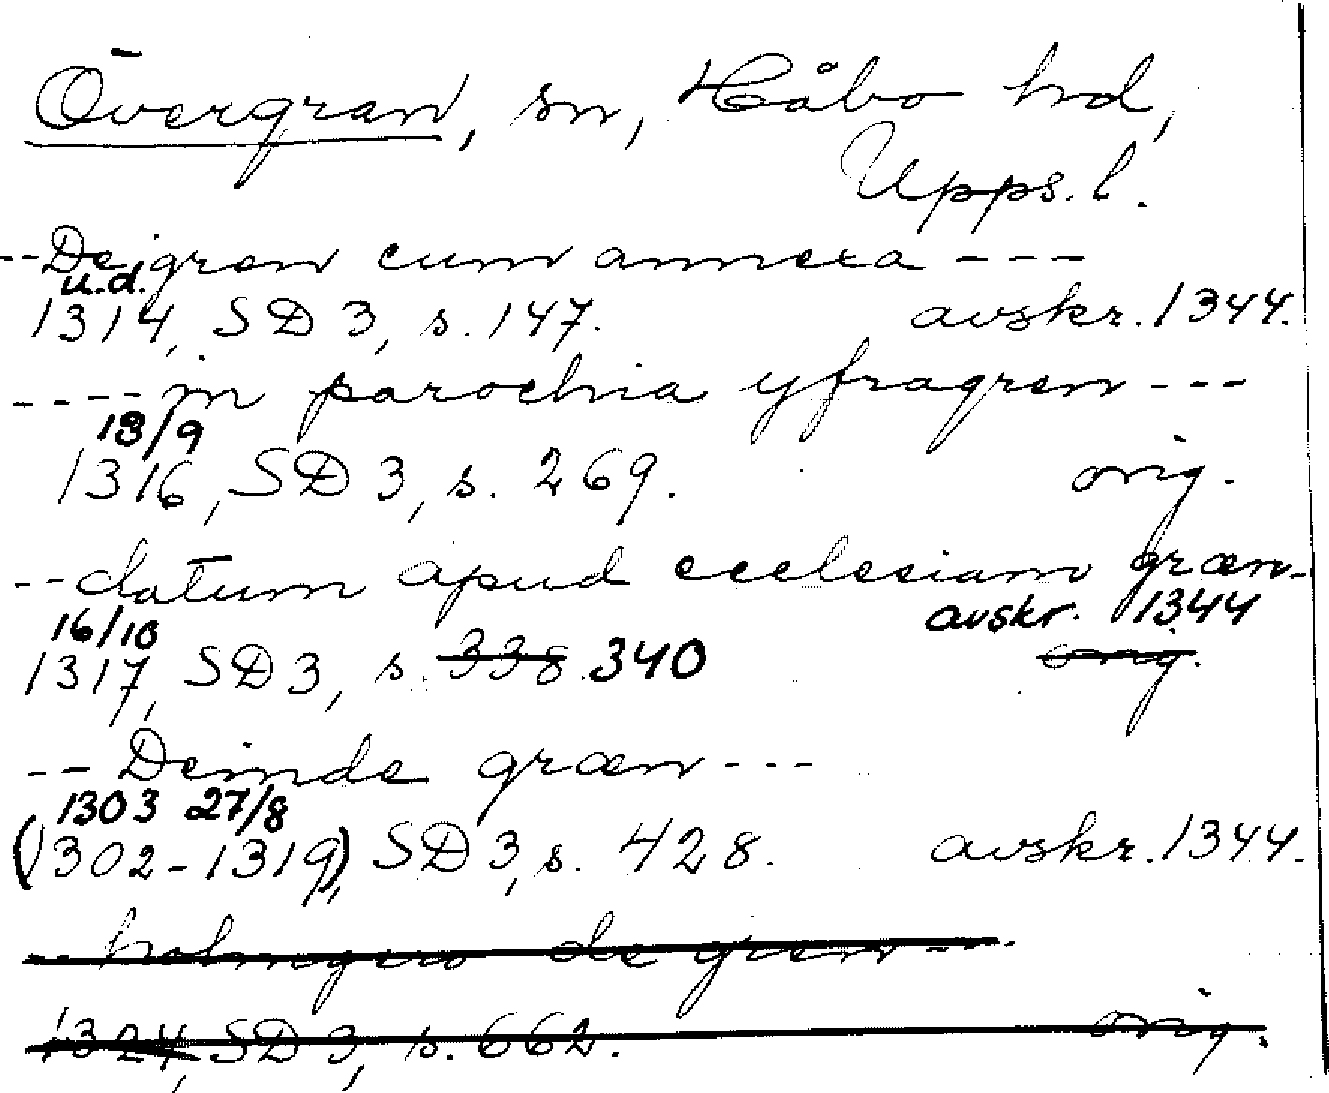 Övergran, sn, Håbo hd,
Upps. l.
-- De gren cum annexa ---
u.d.
1314, SD 3, s. 147. avskr. 1344.
---- in parochia yfragren ---
13/9
1316, SD 3, s. 269. orig.
-- datum apud ecclesiam græn-
16/10 avskr. 1344
1317, SD 3, s. 338 340 orig.
-- Deinde græn ---
1303 27/8
(1302-1319), SD 3, s. 428. avskr. 1344.
-- holmgero de gren ---
1324, SD 3, s. 662. orig.